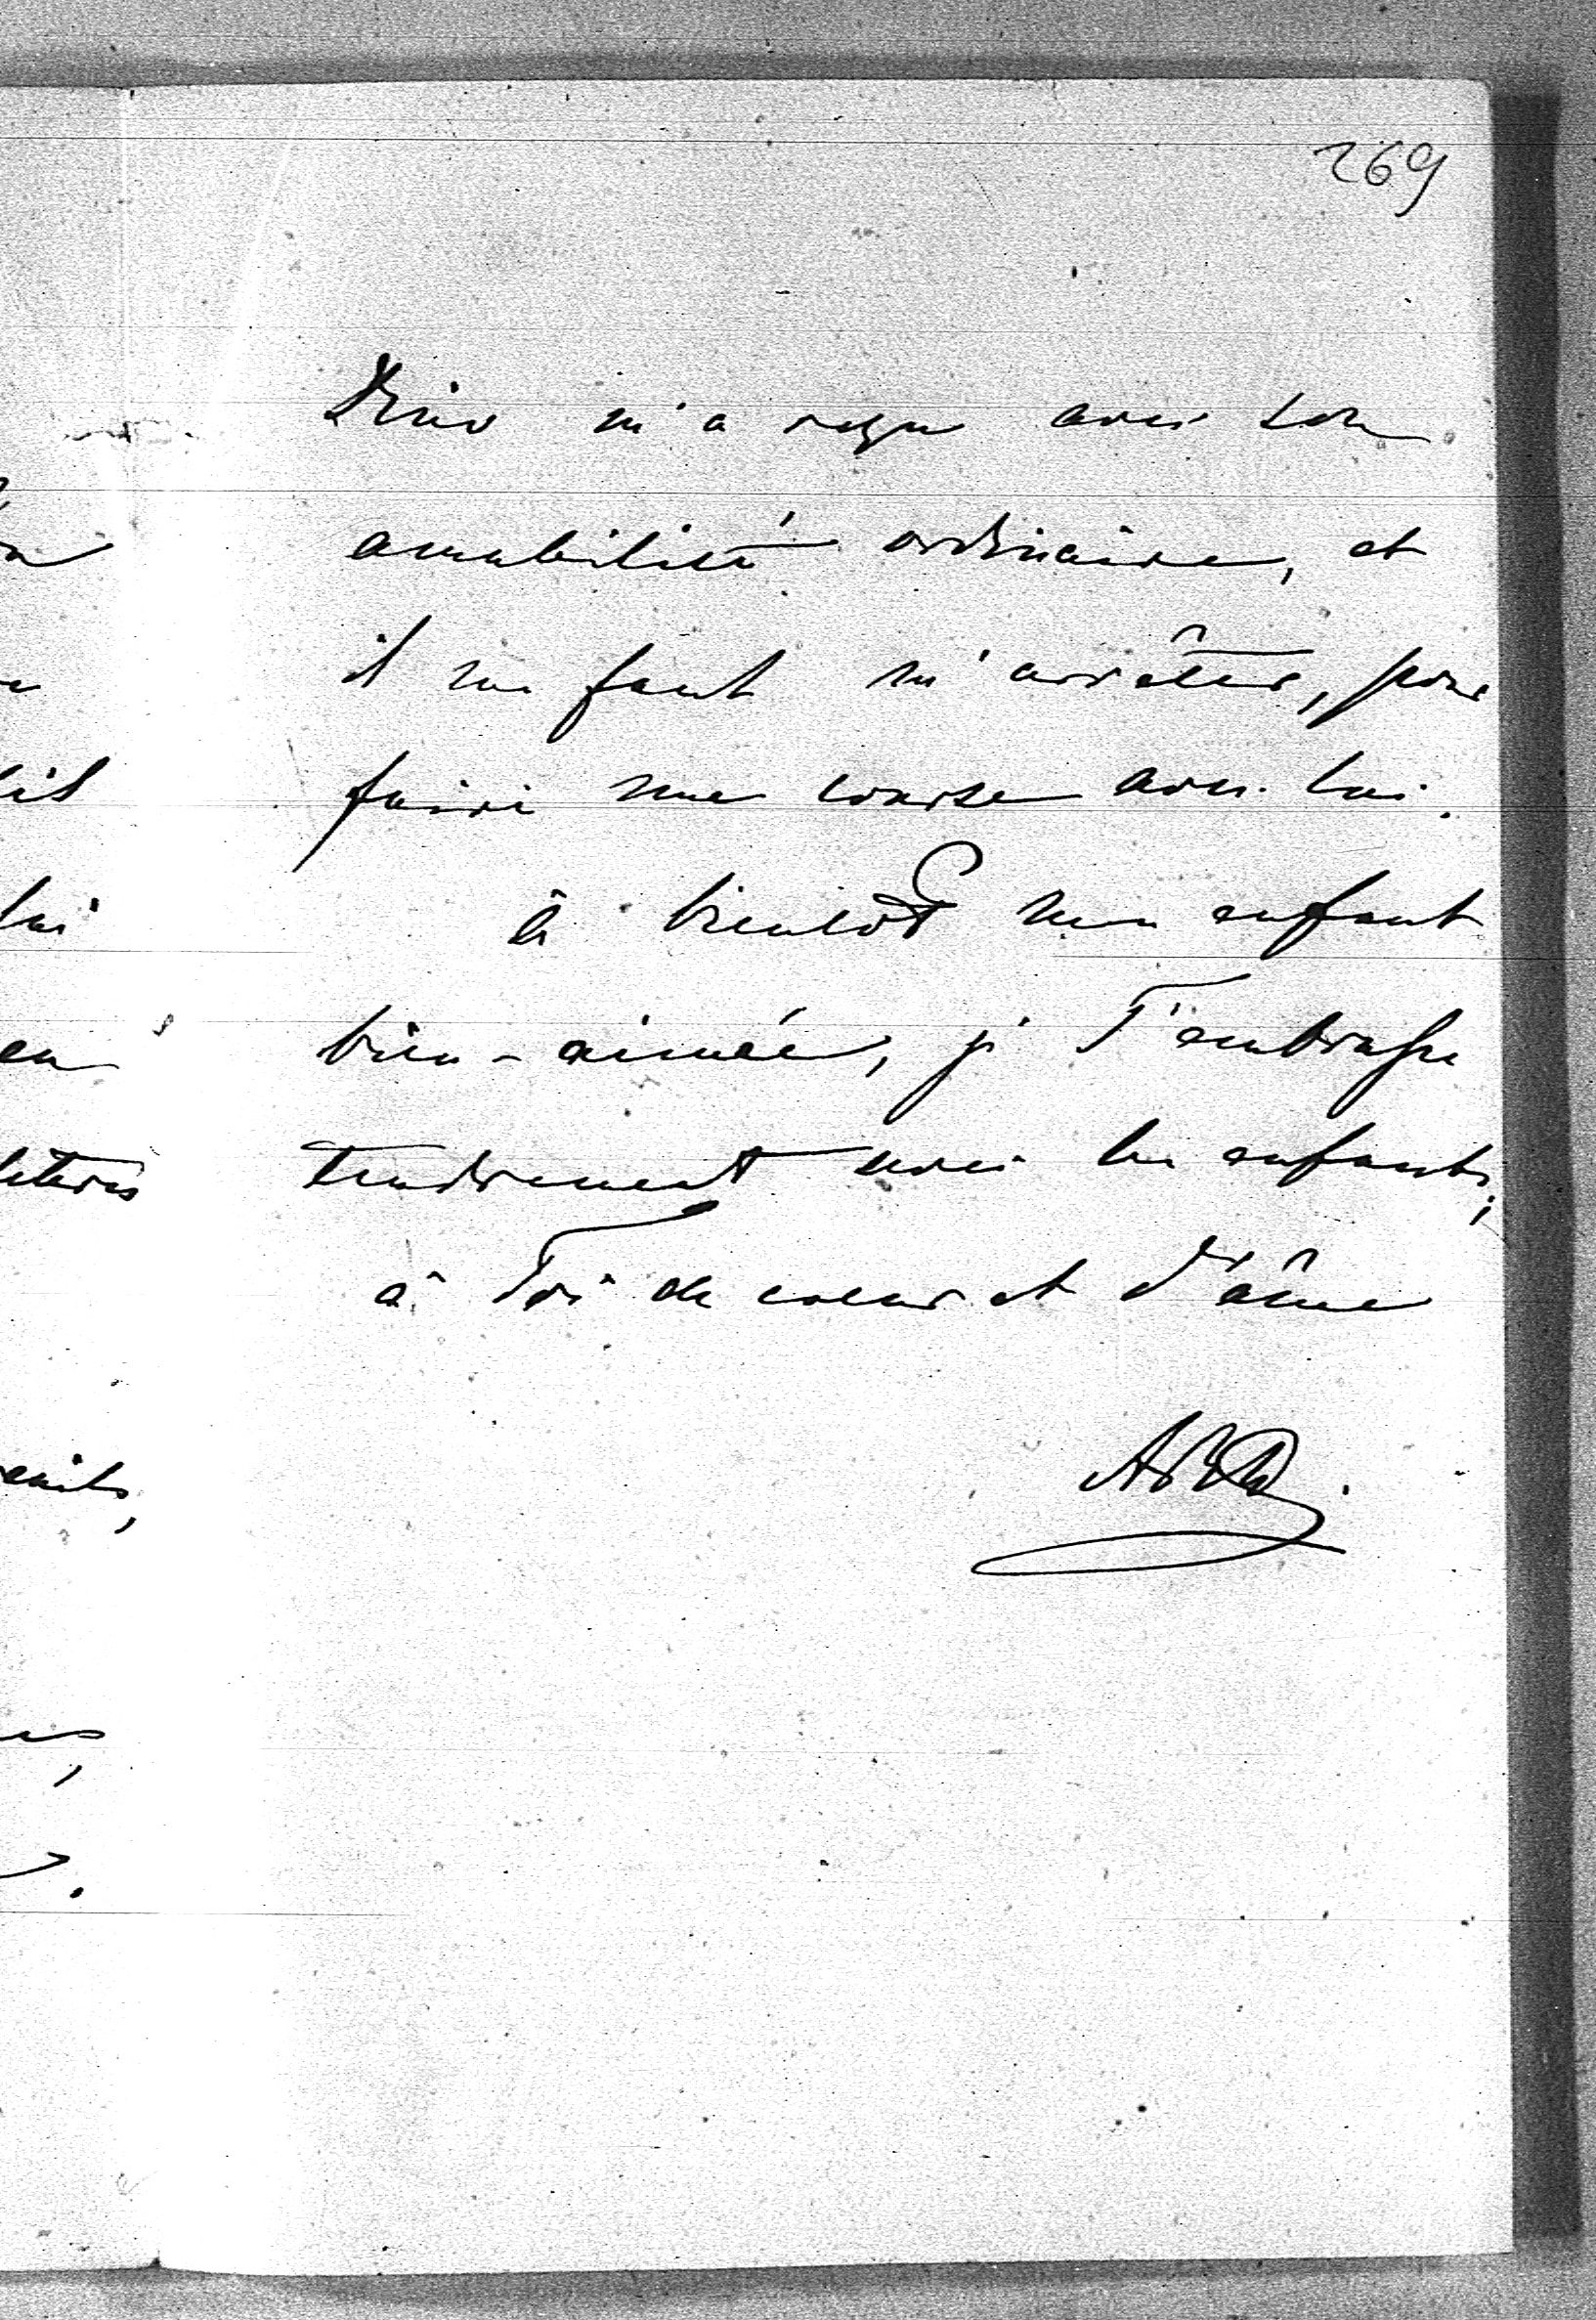 269
Dino m'a reçu avec son
amabilité ordinaire, et
il me faut m'arrêter, pour
faire une course avec lui.
à bientôt mon enfant
bien-aimée, je T'embrasse
tendrement avec les enfants;
à Toi de coeur et d'âme